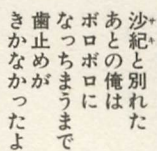 沙紀と別れた
あとの俺は
ボロボロに
なっちまうまで
歯止めが
きかなかったよ